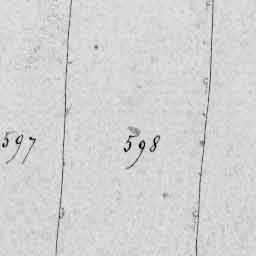 597 598